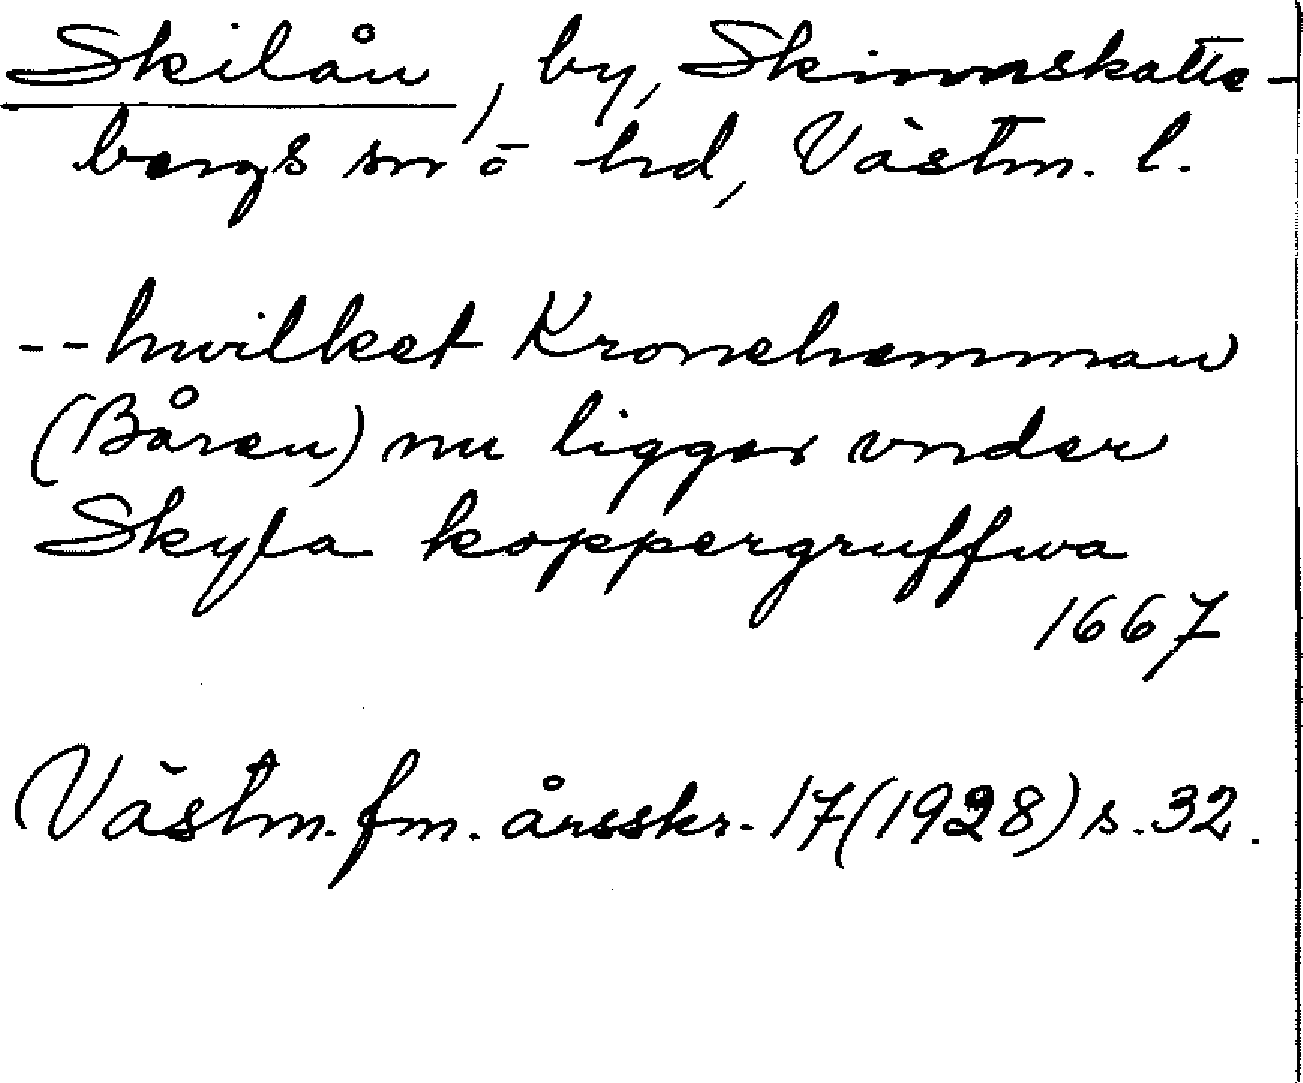 Skilån, by, Skinnskatte-
bergs sn o hd, Västm. l.
-- hwilket Kronehemman
(Båren) nu ligger vnder
Skyla koppergruffwa
1667
Västm. fm. årsskr. 17 (1928) s. 32.